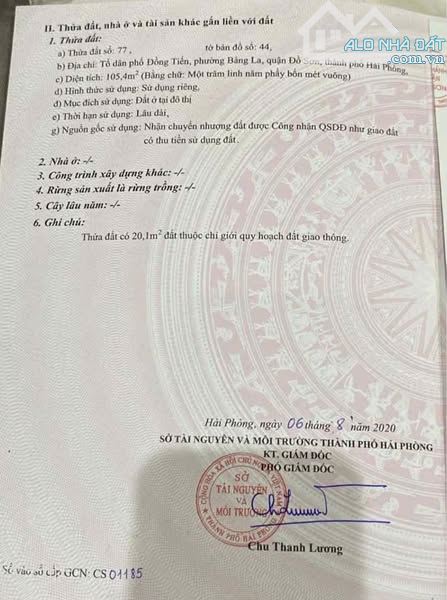 ALO NHÀ ĐẤT
.com.vn
II. Thửa đất, nhà ở và tài sản khác gắn liền với đất
1. Thửa đất:
a) Thửa đất số: 77 , tờ bản đồ số: 44,
b) Địa chỉ: Tổ dân phố Đồng Tiến, phường Bàng La, quận Đồ Sơn, thành phố Hải Phòng,
c) Diện tích: 105,4m² (Bằng chữ: Một trăm linh năm phẩy bốn mét vuông)
d) Hình thức sử dụng: Sử dụng riêng,
đ) Mục đích sử dụng: Đất ở tại đô thị
e) Thời hạn sử dụng: Lâu dài,
g) Nguồn gốc sử dụng: Nhận chuyển nhượng đất được Công nhận QSDĐ như giao đất
có thu tiền sử dụng đất.
2. Nhà ở: -/-
3. Công trình xây dựng khác: -/-
4. Rừng sản xuất là rừng trồng: -/-
5. Cây lâu năm: -/-
6. Ghi chú:
Thửa đất có 20,1m² đất thuộc chỉ giới quy hoạch đất giao thông.
Hải Phòng, ngày 06 tháng 8 năm 2020
SỞ TÀI NGUYÊN VÀ MÔI TRƯỜNG THÀNH PHỐ HẢI PHÒNG
KT. GIÁM ĐỐC
PHÓ GIÁM ĐỐC
CỘNG HÒA XÃ HỘI CHỦ NGHĨA VIỆT NAM
SỞ
TÀI NGUYÊN
VÀ
MÔI TRƯỜNG
THÀNH PHỐ HẢI PHÒNG
Chu Thanh Lương
Số vào sổ cấp GCN: CS 01185